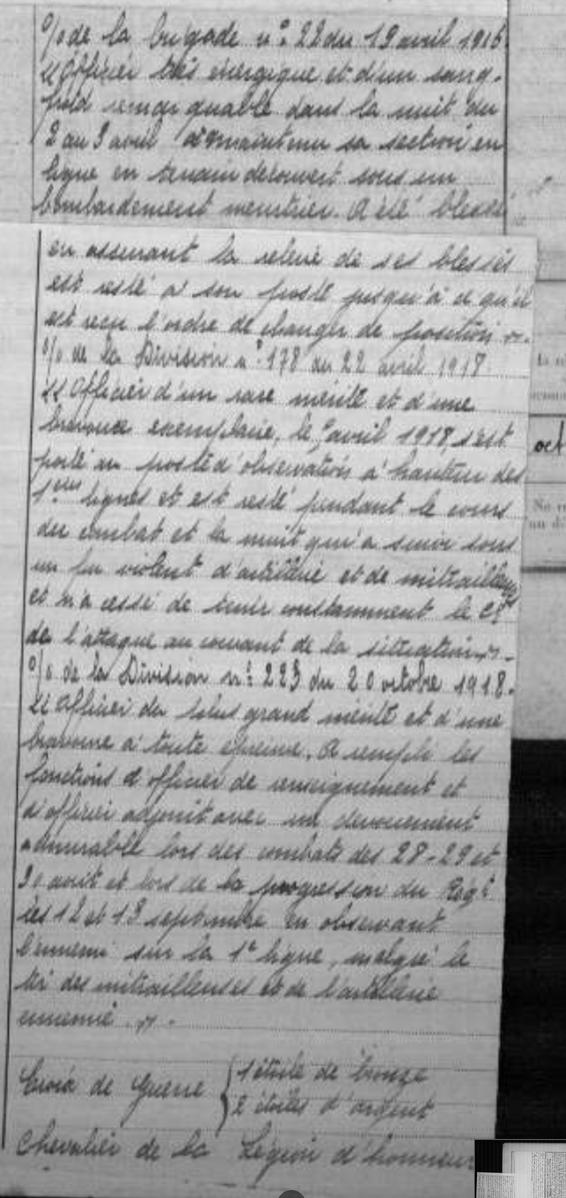 % de la brigade n° 22 du 19 avril 1916
"Officier très énergique et d'un sang-
froid remarquable dans la nuit du
2 au 3 avril a maintenu sa section en
ligne en terrain découvert sous un
bombardement meurtrier. A été blessé
en assurant la relève de ses blessés
est resté à son poste jusqu'à ce qu'il
est reçu l'ordre de changer de position ".
% de la Division n° 178 du 22 avril 1918
"Officier d'un rare mérite et d'une
bravoure exemplaire, le avril 1918, s'est
porté au poste d'observation à hauteur des
1ères lignes et est resté pendant le cours
du combat et la nuit qui a suivi sous
un feu violent d'artillerie et de mitrailleuses
et n'a cessé de tenir constamment le
de l'attaque au courant de la situation ".
% de la Division n° 223 du 20 octobre 1918.
"Officier du plus grand mérite et d'une
bravoure à toute épreuve. A rempli les
fonctions d'officier de renseignement et
d'officier adjoint avec un dévouement
admirable lors des combats des 28-29 et
30 août et lors de la progression du Régt
les 12 et 13 septembre en observant
l'ennemi sur la 1e ligne, malgré le
tir des mitrailleuses et de l'artillerie
ennemie ".
Croix de Guerre { 1 étoile de bronze
2 étoiles d'argent
Chevalier de la Légion d'honneur
oct